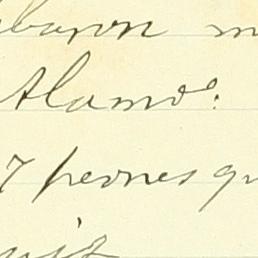 baron m
Alamos.
7 peones qu